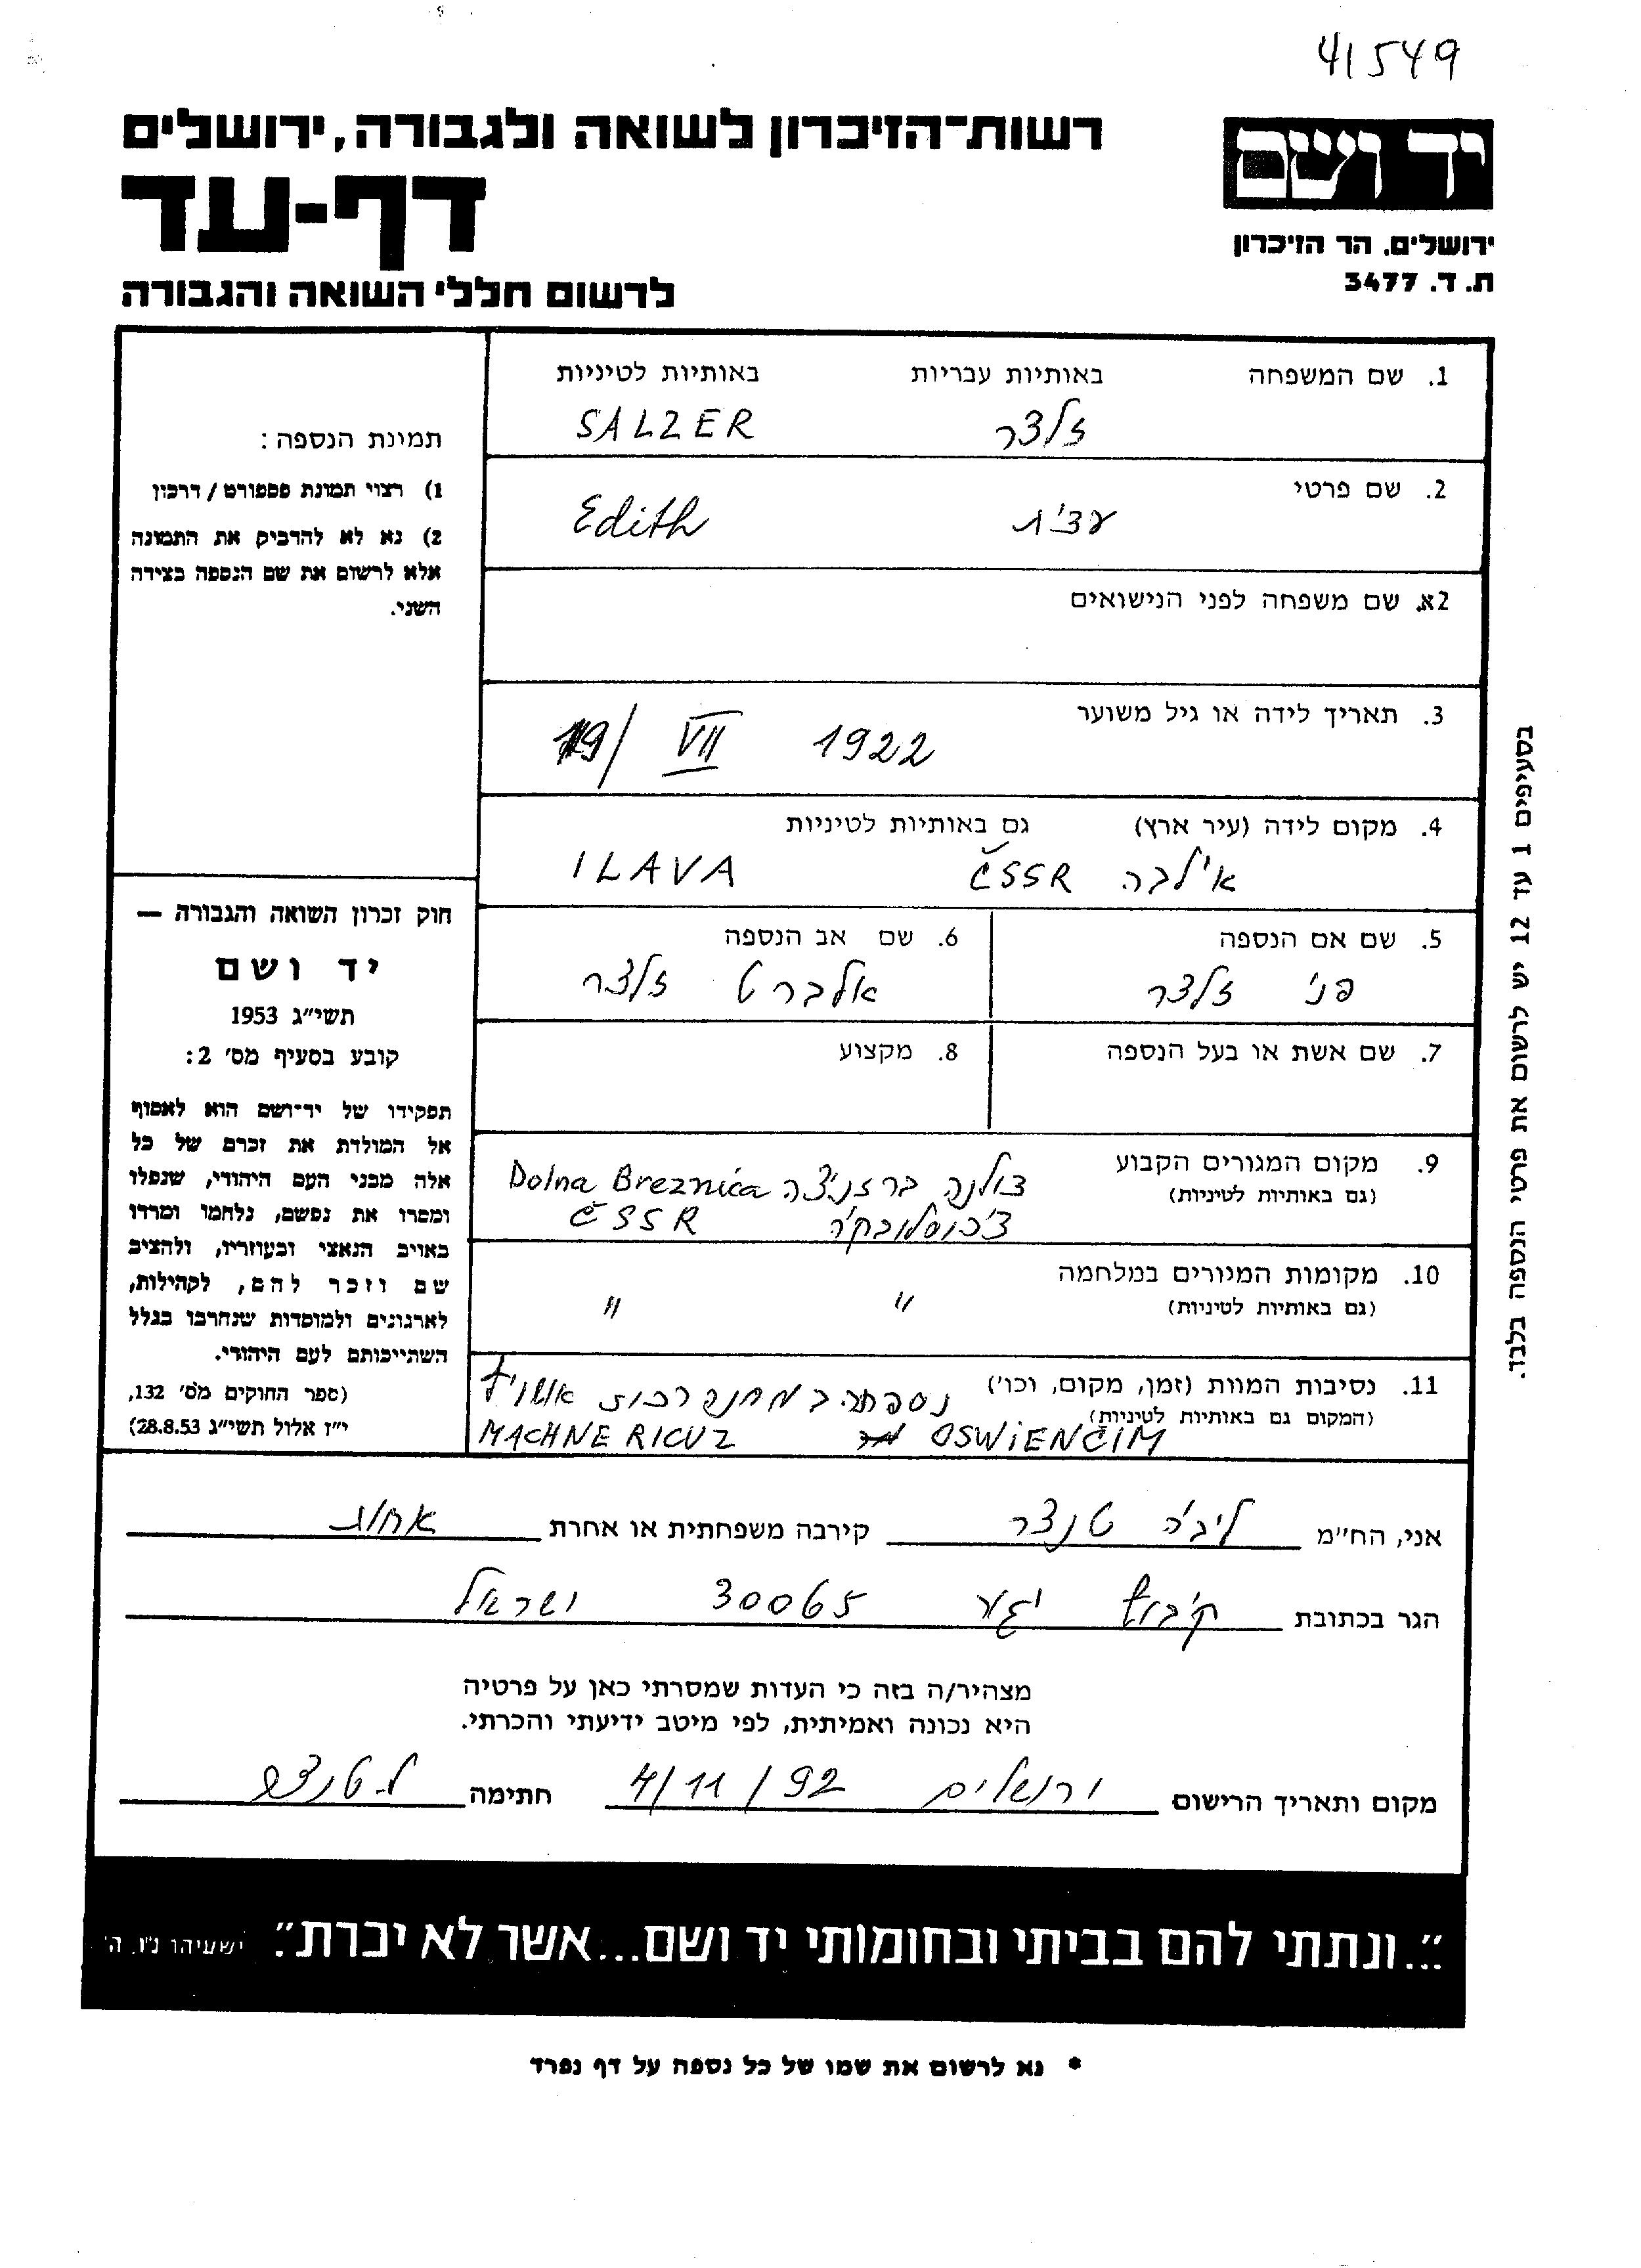 41549
רשות־הזיכרון לשואה ולגבורה, ירושלים
יד ושם
דף-עד
ירושלים, הר הזיכרון
ת. ד. 3477
לרשום חללי השואה והגבורה
1. שם המשפחה באותיות עבריות באותיות לטיניות
זלצר SALZER
2. שם פרטי
עדית Edith
2א. שם משפחה לפני הנישואים
3. תאריך לידה או גיל משוער
19/ VII 1922
4. מקום לידה (עיר ארץ) גם באותיות לטיניות
אילבה ČSSR ILAVA
5. שם אם הנספה 6. שם אב הנספה
פני זלצר אלברט זלצר
7. שם אשת או בעל הנספה 8. מקצוע
9. מקום המגורים הקבוע
(גם באותיות לטיניות)
דולנה ברזניצה Dolna Breznica
צ'כוסלובקיה ČSSR
10. מקומות המגורים במלחמה
(גם באותיות לטיניות)
" "
11. נסיבות המוות (זמן, מקום, וכו')
(המקום גם באותיות לטיניות)
נספתה במחנה רכוז אושויץ
MACHNE RICUZ OSWIENČIM
תמונת הנספה:
1) רצוי תמונת פספורט / דרכון
2) נא לא להדביק את התמונה
אלא לרשום את שם הנספה בצידה
השני.
חוק זכרון השואה והגבורה —
יד ושם
תשי״ג 1953
קובע בסעיף מס׳ 2:
תפקידו של יד־ושם הוא לאסוף
אל המולדת את זכרם של כל
אלה מבני העם היהודי, שנפלו
ומסרו את נפשם, נלחמו ומרדו
באויב הנאצי ובעוזריו, ולהציב
שם וזכר להם, לקהילות,
לארגונים ולמוסדות שנחרבו בגלל
השתייכותם לעם היהודי.
(ספר החוקים מס׳ 132,
י״ז אלול תשי״ג 28.8.53)
בסעיפים 1 עד 12 יש לרשום את פרטי הנספה בלבד.
אני, הח״מ ליביה טנצר קירבה משפחתית או אחרת אחות
הגר בכתובת קיבוץ יגע 30065 ישראל
מצהיר/ה בזה כי העדות שמסרתי כאן על פרטיה
היא נכונה ואמיתית, לפי מיטב ידיעתי והכרתי.
מקום ותאריך הרישום ירושלים 4/11/92 חתימה ל. טנצר
"...ונתתי להם בביתי ובחומותי יד ושם...אשר לא יכרת." ישעיהו נ״ו, ה׳
* נא לרשום את שמו של כל נספה על דף נפרד